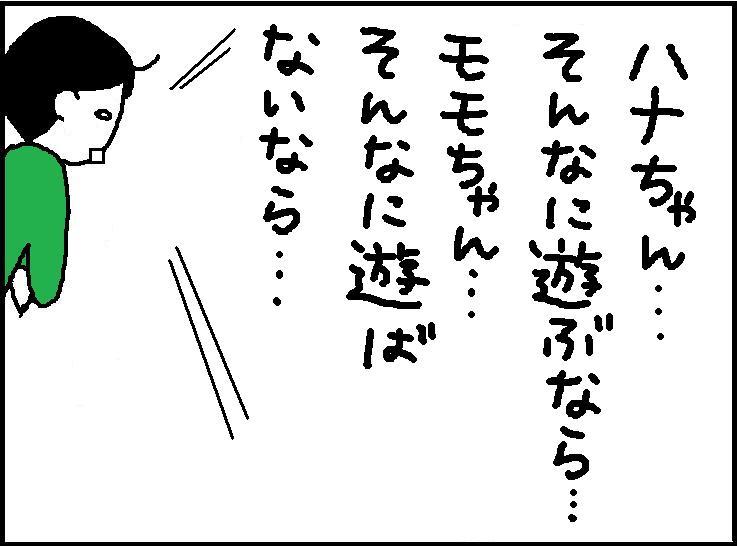 ハナちゃん…
そんなに遊ぶなら…
モモちゃん…
そんなに遊ば
ないなら…